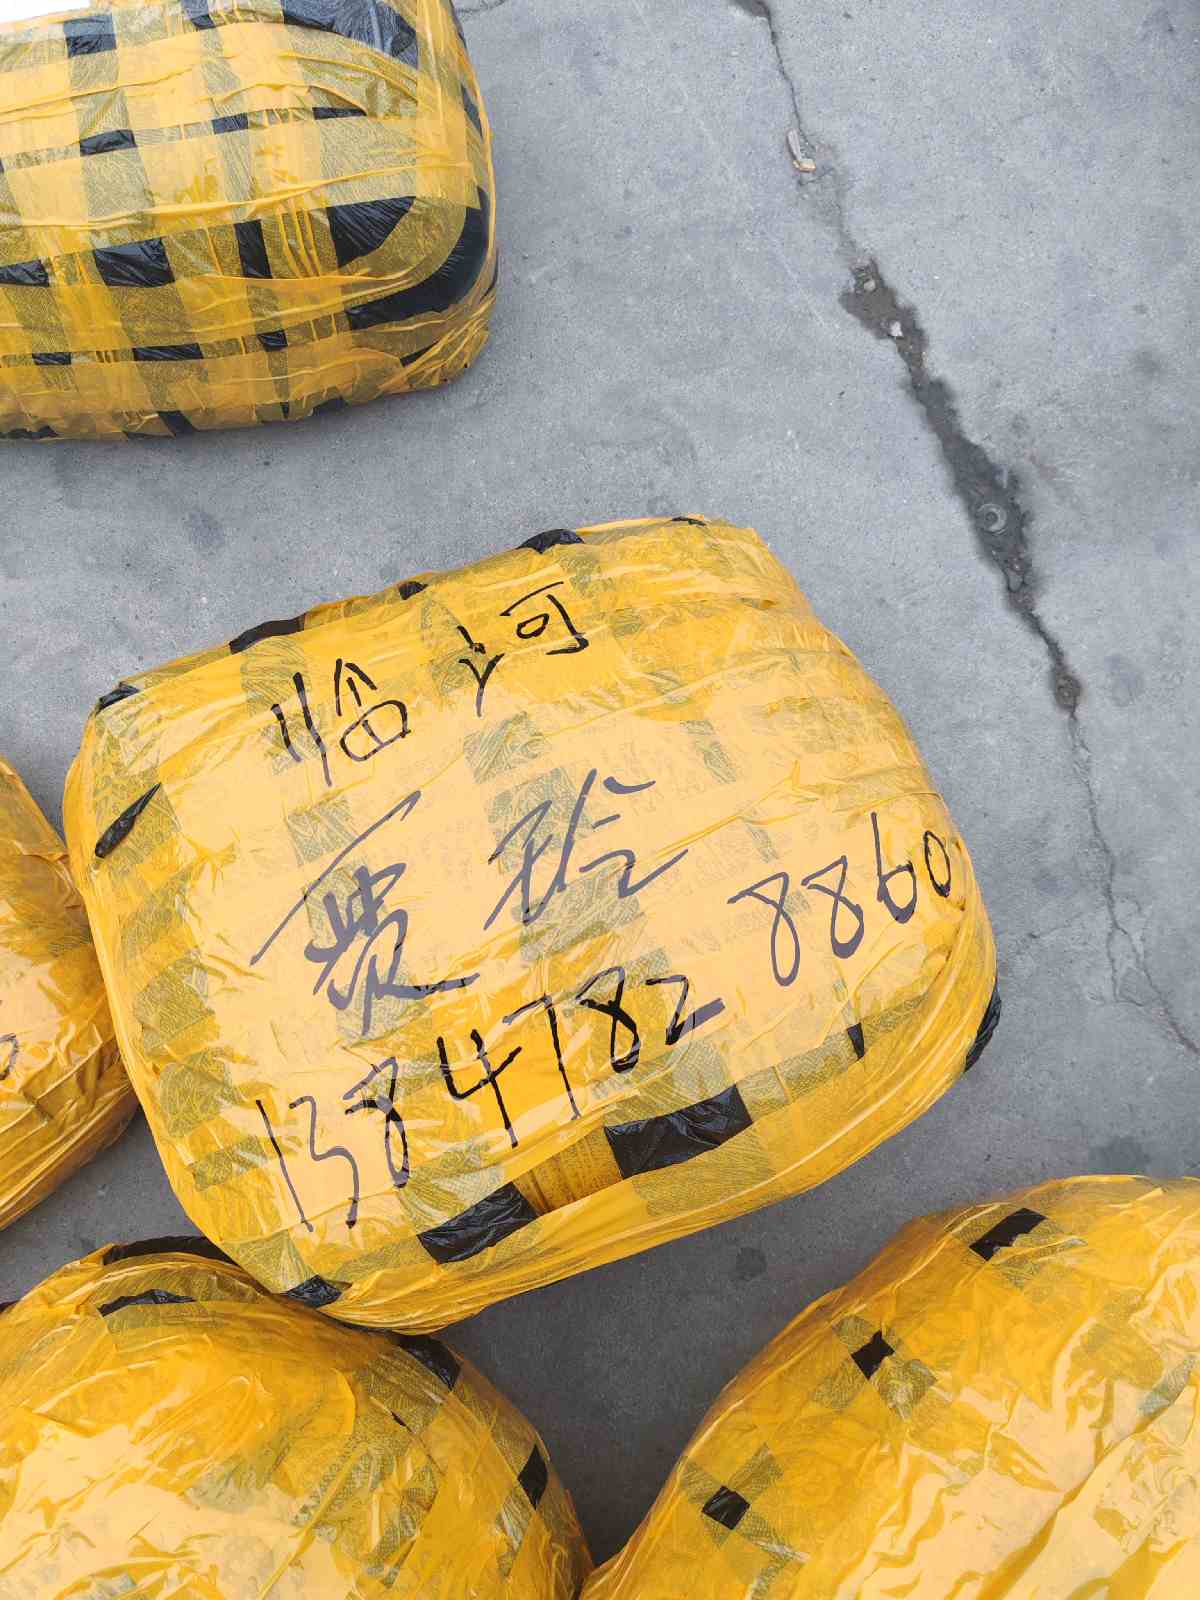 临河
玲
13847828860